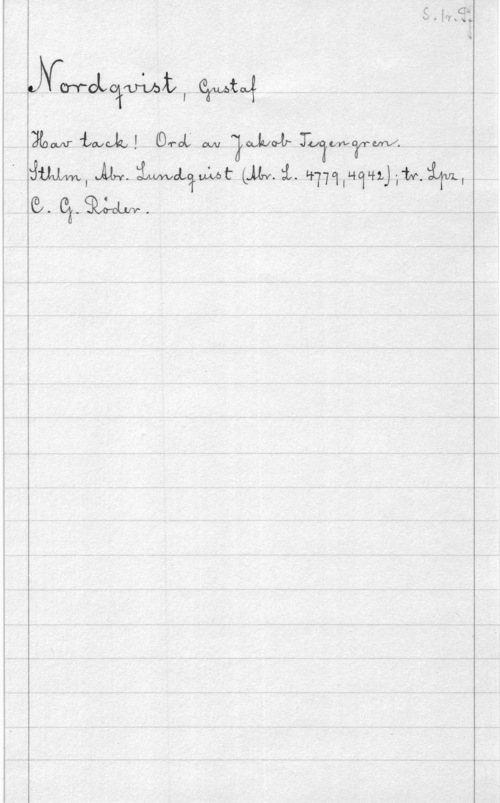 S. tr.
Nordqvist, Gustaf
Hav tack! Ord av Jakob Tegengren.
Sthlm, Abr. Lundquist (Abr. L. 4779, 4942); tr. Lpz,
C. G. Röder.